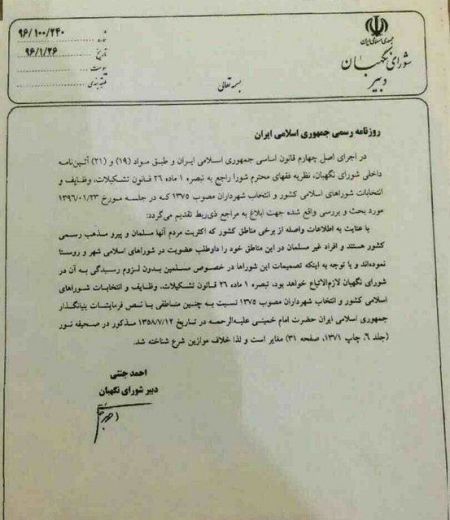 جمهوری اسلامی ایران
شورای نگهبان
دبیر
شماره ۹۶/۱۰۰/۲۴۰
تاریخ ۹۶/۱/۲۶
پیوست
طبقه‌بندی
بسمه تعالی
روزنامه رسمی جمهوری اسلامی ایران
در اجرای اصل چهارم قانون اساسی جمهوری اسلامی ایران و طبق مواد (۱۹) و (۲۱) آئین‌نامه
داخلی شورای نگهبان، نظریه فقهای محترم شورا راجع به تبصره ۱ ماده ۲۶ قانون تشکیلات، وظایف و
انتخابات شوراهای اسلامی کشور و انتخاب شهرداران مصوب ۱۳۷۵ که در جلسه مورخ ۱۳۹۶/۰۱/۲۳
مورد بحث و بررسی واقع شده جهت ابلاغ به مراجع ذی‌ربط تقدیم می‌گردد:
با عنایت به اطلاعات واصله از برخی مناطق کشور که اکثریت مردم آنها مسلمان و پیرو مذهب رسمی
کشور هستند و افراد غیر مسلمان در این مناطق خود را داوطلب عضویت در شوراهای اسلامی شهر و روستا
نموده‌اند و با توجه به اینکه تصمیمات این شوراها در خصوص مسلمین بدون لزوم رسیدگی به آن در
شورای نگهبان لازم‌الاتباع خواهد بود، تبصره ۱ ماده ۲۶ قانون تشکیلات، وظایف و انتخابات شوراهای
اسلامی کشور و انتخاب شهرداران مصوب ۱۳۷۵ نسبت به چنین مناطقی با نص فرمایشات بنیانگذار
جمهوری اسلامی ایران حضرت امام خمینی علیه‌الرحمه در تاریخ ۱۳۵۸/۷/۱۲ مذکور در صحیفه نور
(جلد ۶، چاپ ۱۳۷۱، صفحه ۳۱) مغایر است و لذا خلاف موازین شرع شناخته شد.
احمد جنتی
دبیر شورای نگهبان